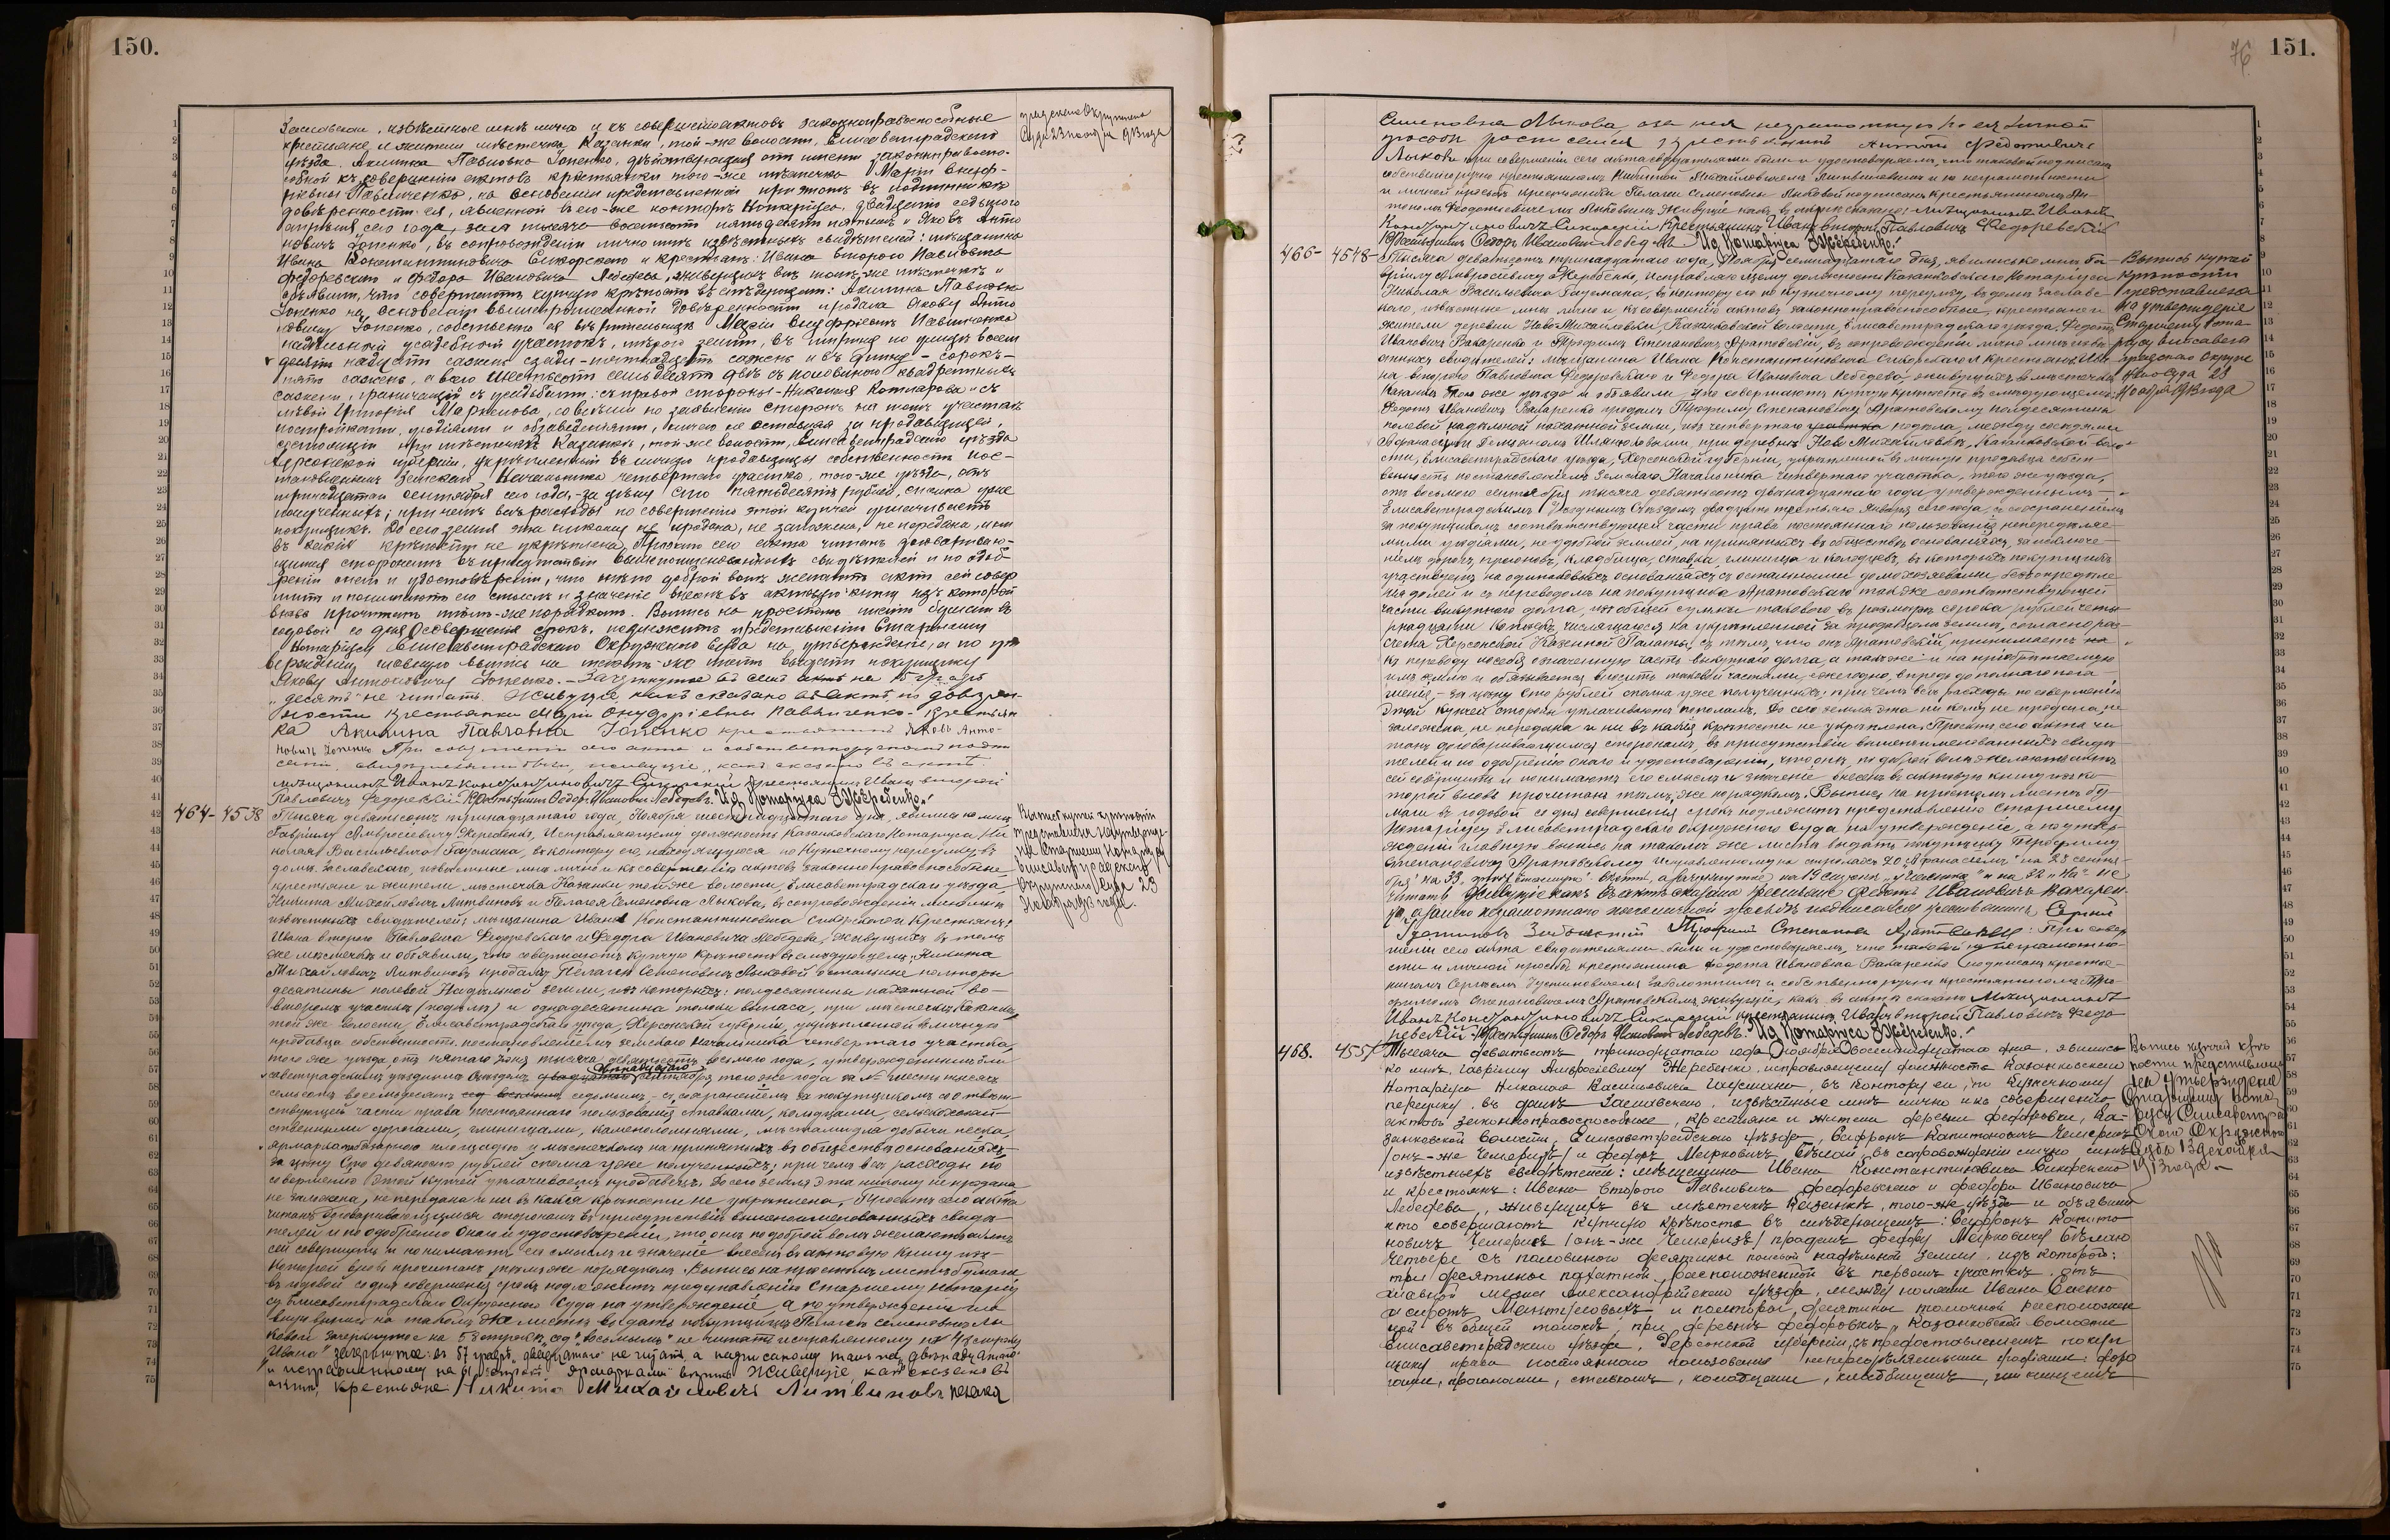 150.
Заславскаго, извѣстные мнѣ лично и къ совершенію актовъ законноправоспособные
крестьяне и жители мѣстечка Казанки, той-же волости, Елисаветградскаго
уѣзда. Акилина Павловна Іоненко, дѣйствующая отъ имени законноправоспо-
собной къ совершенію актовъ крестьянки того-же мѣстечка Маріи Онуф-
ріевны Павличенко, на основаніи представленной при этомъ въ подлинникѣ
довѣренности ея, явленной въ его-же конторѣ Нотаріуса, двадцать седьмого
сего года, и Яковъ Анто
новичъ Іоненко, въ сопровожденіи лично мнѣ извѣстныхъ свидѣтелей: мѣщанина
Ивана Константиновича Сикорскаго и крестьянъ: Ивана второго Павловича
Федоревскаго и Федора Ивановича Лебедева, живущихъ въ томъ-же мѣстечкѣ и
объявили, что совершаютъ купчую крѣпость въ слѣдующемъ: Акилина Павловна
Іоненко на основаніи вышепрописанной довѣренности продала Якову Анто
новичу Іоненко, собственно ея вѣрительницѣ Маріи Онуфріевнѣ Павличенко
надѣльный усадебный участокъ, мѣрою земли, въ ширину по улицѣ восем
надцать сажень сзади - пятнадцать сажень и въ длину - сорокъ-
пять сажень, а всего шестьсотъ семьдесятъ двѣ съ половиною квадратныхъ
сажени, граничащій съ усадьбами: съ правой стороны - Николая Котлярова и съ
лѣвой Григорія Маркелова, со всѣми по заявленію сторонъ на томъ участкѣ
постройками, угодіями и обзаведеніями, ничего не оставляя за продавщицей,
состоящій при мѣстечкѣ Казанкѣ, той же волости, Елисаветградскаго уѣзда
Херсонской губерніи, укрѣпленный въ личную продавщицы собственность пос-
тановленіемъ Земскаго Начальника четвертаго участка, того-же уѣзда, отъ
тринадцатаго сентября сего года, за цѣну сто пятьдесятъ рублей, сполна уже
полученныхъ; при чемъ всѣ расходы по совершенію этой купчей уплачиваетъ
покупщикъ. До сего земля эта никому не продана, не заложена, не передана, и ни
въ какія крѣпости не укрѣплена. Проектъ сего акта читанъ договариваю-
щимся сторонамъ въ присутствіи вышепоименованныхъ свидѣтелей и по одоб-
реніи онаго и удостовѣреніи, что онѣ по доброй волѣ желаютъ актъ сей совер
шить и понимаютъ его смыслъ и значеніе внесенъ въ актовую книгу изъ которой
вновь прочитанъ тѣмъ-же порядкомъ. Выпись на простомъ листѣ бумаги въ
годовой со дня совершенія срокъ, подлежитъ представленію Старшему
Нотаріусу Елисаветградскаго Окружнаго Суда на утвержденіе, и по ут
вержденіи главную выпись на такомъ-же листѣ выдать покупщику
Якову Антоновичу Іоненко. -
„десять" не читать. Живущіе какъ сказано въ актѣ, по довѣрен-
ности крестьянки Маріи Онуфріевны Павличенко - крестьян
ка Акилина Павловна Іоненко крестьянинъ Яковъ Анто-
новичъ Іоненко При совершеніи сего акта и собственноручномъ подпи
саніи свидѣтелями были, живущіе, какъ сказано въ актѣ:
мѣщанинъ Иванъ Константиновичъ Сикорскій крестьянинъ Иванъ второй
Павловичъ Федоревскій. Крестьянинъ Федоръ Ивановъ Лебедевъ. И. д. Нотаріуса Г. Жеребенко.
утвержденіе Окружнаго
Суда 23 ноября 1913 года
464 - 4538 Тысяча девятьсотъ тринадцатаго года, Ноября шестнадцатаго дня, явились ко мнѣ
Гавріилу Амвросіевичу Жеребенко, Исправляющему должность Казанковскаго Нотаріуса, Ни
колая Васильевича Гаусмана, въ контору его, находящуюся по Кузнечному переулку въ
домѣ Заславскаго, извѣстные мнѣ лично и къ совершенію актовъ законноправоспособные
крестьяне и жители мѣстечка Казанки той же волости, Елисаветградскаго уѣзда,
Никита Михайловичъ Литвиновъ и Пелагея Семеновна Лыкова, въ сопровожденіи лично мнѣ
извѣстныхъ свидѣтелей: мѣщанина Ивана Константиновича Сикорскаго и крестьянъ:
Ивана второго Павловича Федоревскаго и Федора Ивановича Лебедева, живущихъ въ томъ
же мѣстечкѣ и объявили, что совершаютъ купчую крѣпость въ слѣдующемъ: Никита
Михайловичъ Литвиновъ продалъ Пелагеѣ Семеновнѣ Лыковой остальные полторы
десятины полевой Надѣльной земли, изъ которыхъ: полдесятины пахатной во-
второмъ участкѣ (подѣлъ) и одна десятина толоки выпаса, при мѣстечкѣ Казанкѣ
той же волости, Елисаветградскаго уѣзда, Херсонской губерніи, укрѣпленной въ личную
продавца собственность постановленіемъ Земскаго Начальника четвертаго участка,
того же уѣзда, отъ пятаго Іюня тысяча девятьсотъ восьмого года, утвержденнымъ Ели
саветградскимъ уѣзднымъ Съѣздомъ двѣнадцатаго сентября того же года за № шесть тысячъ
семьсотъ восемьдесятъ седьмымъ, съ сохраненіемъ за покупщикомъ соотвѣт-
ствующей части права постояннаго пользованія ставками, колодцами, сельскохозяй-
ственными дорогами, глинищами, каменоломнями, мѣстами для добычи песка,
ярмарочно-базарною площадью и мѣстечкомъ на принятыхъ въ обществѣ основаніяхъ
за цѣну Сто девяносто рублей сполна уже полученныхъ; при чемъ всѣ расходы по
совершенію этой купчей уплачиваетъ продавецъ. До сего земля эта никому не продана
не заложена, не передана и ни въ какія крѣпости не укрѣплена. Проектъ сего акта
читанъ договаривающимся сторонамъ въ присутствіи вышепоименованныхъ свидѣ
телей и по одобреніи онаго и удостовѣреніи, что онѣ по доброй волѣ желаютъ актъ
сей совершить и понимаютъ его смыслъ и значеніе внесенъ въ актовую книгу изъ
которой вновь прочитанъ тѣмъ же порядкомъ. Выпись на простомъ листѣ бумаги
въ годовой со дня совершенія срокъ подлежитъ представленію Старшему Нотаріу
су Елисаветградскаго Окружнаго Суда на утвержденіе, а по утвержденіи гла
вную выпись на такомъ же листѣ выдать покупщицѣ Пелагеѣ Семеновнѣ Лы
ковой. Зачеркнутое на 58 строкѣ „восьмымъ" не читать исправленному на
„Ивана" зачеркнутое въ 57 строкѣ „двадцатаго" не читать, а надписанному тамъ же „двѣнадцатаго"
и исправленному на 61 строкѣ вѣрить Живущіе, какъ сказано въ
актѣ, крестьяне Никита Михайловичъ Литвиновъ Пелагея
Выпись купчей крѣпости
представлена на утвержде-
ніе Старшему Нотаріусу
Елисаветградскаго
Окружнаго Суда 23
Ноября 1913 года.
76 151.
Семеновна Лыкова, а за нея неграмотную по ея личной
просьбѣ росписался крестьянинъ Антонъ Федотовичъ
Лыковъ. При совершеніи сего акта свидѣтелями были и удостовѣряемъ, что таковой подписанъ
собственноручно крестьяниномъ Никитой Михайловичемъ Литвиновымъ и по неграмотности
и личной просьбѣ крестьянки Пелагеи Семеновны Лыковой подписанъ крестьяниномъ Ан-
тономъ Федотовичемъ Лыковымъ, живущіе какъ въ актѣ сказано: мѣщанинъ Иванъ
Константиновичъ Сикорскій Крестьянинъ Иванъ второй Павловичъ Федоревскій
Крестьянинъ Федоръ Ивановичъ Лебедевъ И. д. Нотаріуса Г. Жеребенко.
466 - 4548 Тысяча девятьсотъ тринадцатаго года, Ноября семнадцатаго дня, явились ко мнѣ Га-
врилу Амвросіевичу Жеребенко, Исправляющему должность Казанковскаго Нотаріуса
Николая Васильевича Гаусмана, въ контору его по Кузнечному переулку, въ домѣ Заславс-
каго, извѣстные мнѣ лично и къ совершенію актовъ законноправоспособные, крестьяне и
жители деревни Ново-Михайловки Казанковской волости, Елисаветградскаго уѣзда, Федотъ
Ивановичъ Вакаренко и Трофимъ Степановичъ Аратовскій, въ сопровожденіи лично мнѣ извѣ
стныхъ свидѣтелей: мѣщанина Ивана Константиновича Сикорскаго и крестьянъ Ива
на второго Павловича Федоревскаго и Федора Ивановича Лебедева, живущихъ въ мѣстечкѣ
Казанкѣ, того же уѣзда и объявили, что совершаютъ купчую крѣпость въ слѣдующемъ:
Федотъ Ивановичъ Вакаренко продалъ Трофиму Степановичу Аратовскому полдесятины
полевой надѣльной пахатной земли, изъ четвертаго участка подѣла, между сосѣдями
Афанасіемъ и Демьяномъ, при деревнѣ Ново Михайловкѣ, Казанковской воло-
сти, Елисаветградскаго уѣзда, Херсонской губерніи, укрѣпленной въ личную продавца собст-
венность постановленіемъ Земскаго Начальника четвертаго участка, того же уѣзда,
отъ восьмого сентября тысяча девятьсотъ двѣнадцатаго года утвержденнымъ
Елисаветградскимъ Уѣзднымъ Съѣздомъ двадцать третьяго Января сего года, съ сохраненіемъ
за покупщикомъ соотвѣтствующей части права постояннаго пользованія непередѣляе-
мыми угодіями, неудобной землей, на принятыхъ въ обществѣ основаніяхъ, за исключе-
ніемъ дорогъ, прогоновъ, кладбища, ставка, глинища и колодцевъ, въ которыхъ покупщикъ
участвуетъ на одинаковыхъ основаніяхъ съ остальными домохозяевами безъ опредѣле
нія долей и съ переводомъ на покупщика Аратовскаго также соотвѣтствующей
части выкупного долга, изъ общей суммы таковаго въ размѣрѣ сорока рублей четы-
рнадцати копѣекъ, числящагося на укрѣпленной за продавцомъ землѣ, согласно раз-
счета Херсонской Казенной Палаты, съ тѣмъ, что онъ Аратовскій, принимаетъ
къ переводу на себя означенную часть выкупного долга, а также и на пріобрѣтаемую
имъ землю и обязывается вносить таковой частями, ежегодно, впредь до полнаго пога
шенія, - за цѣну Сто рублей сполна уже полученныхъ; при чемъ всѣ расходы по совершенію
этой купчей стороны уплачиваютъ пополамъ. До сего земля эта никому не продана, не
заложена, не передана и ни въ какія крѣпости не укрѣплена. Проектъ сего акта чи
танъ договаривающимся сторонамъ, въ присутствіи вышепоименованныхъ свидѣ
телей и по одобреніи онаго и удостовѣреніи, что онѣ, по доброй волѣ желаютъ актъ
сей совершить и понимаютъ его смыслъ и значеніе внесенъ въ актовую книгу изъ ко-
торой вновь прочитанъ тѣмъ же порядкомъ. Выпись на простомъ листѣ бу-
маги въ годовой со дня совершенія срокъ подлежитъ представленію Старшему
Нотаріусу Елисаветградскаго Окружнаго Суда на утвержденіе, а по утвер-
жденіи главную выпись на такомъ же листѣ выдать покупщику Трофиму
Степановичу Аратовскому. Исправленному на строкахъ 20 „Афанасіемъ" на 23 сентя-
бря" на 33, а зачеркнутое на 19 „участка" и на 32 „на" не
читать Живущіе какъ въ актѣ сказано крестьяне Федотъ Ивановичъ Вакарен-
ко, а за него неграмотнаго по его личной просьбѣ подписался крестьянинъ Сергѣй
Трофимъ Степановъ Аратовскій: При совер
шеніи сего акта свидѣтелями были и удостовѣряемъ, что таковой по неграмотно-
сти и личной просьбѣ крестьянина Федота Ивановича Вакаренко подписанъ крестья-
ниномъ Сергѣемъ и собственноручно крестьяниномъ Тро-
фимомъ Степановичемъ Аратовскимъ, живущіе, какъ въ актѣ сказано Мѣщанинъ
Иванъ Константиновичъ Сикорскій крестьянинъ Иванъ второй Павловичъ Федо
ревскій Крестьянинъ Федоръ Ивановъ Лебедевъ. И. д. Нотаріуса Г. Жеребенко.
Выпись купчей
крѣпости
представлена
на утвержденіе
Старшему Нота-
ріусу Елисавет-
градскаго Окруж
наго Суда 23
Ноября 1913 года
468. 4557 Тысяча девятьсотъ тринадцатаго года Ноября восемнадцатаго дня, явились
ко мнѣ, Гавріилу Амвросіевичу Жеребенко, исправляющему должность Казанковскаго
Нотаріуса Николая Васильевича Гаусмана, въ контору его, по Кузнечному
переулку, въ домѣ Заславскаго, извѣстные мнѣ лично и къ совершенію
актовъ законноправоспособные, крестьяне и жители деревни Федоровки, Ка-
занковской волости, Елисаветградскаго уѣзда, Сафронъ Капитоновичъ Чемерисъ
/онъ-же Чемеризъ/ и Федоръ Марковичъ Бѣлый, въ сопровожденіи лично мнѣ
извѣстныхъ свидѣтелей: мѣщанина Ивана Константиновича Сикорскаго
и крестьянъ: Ивана второго Павловича Федоревскаго и Федора Ивановича
Лебедева, живущихъ въ мѣстечкѣ Казанкѣ, того-же уѣзда и объявили
что совершаютъ купчую крѣпость въ слѣдующемъ: Сафронъ Капито
новичъ Чемерисъ /онъ-же Чемеризъ/ продалъ Федору Марковичу Бѣлому
четыре съ половиною десятины полевой надѣльной земли, изъ которой:
три десятины пахатной, расположенной въ первомъ участкѣ, отъ
межи Александрійскаго уѣзда, между полями Ивана
и сиротъ и полторы десятины толочной расположен
ной въ общей толокѣ, при деревнѣ Федоровкѣ, Казанковской волости
Елисаветградскаго уѣзда, Херсонской губерніи, съ предоставленіемъ покуп
щику права постояннаго пользованія непередѣляемыми угодіями: доро
гами, прогонами, ставкомъ, колодцами, кладбищемъ, глинищемъ
Выпись купчей крѣ-
пости представлена
на утвержденіе
Старшему Нота
ріусу Елисаветград
скаго Окружного
Суда 13 декабря
1913 года. -